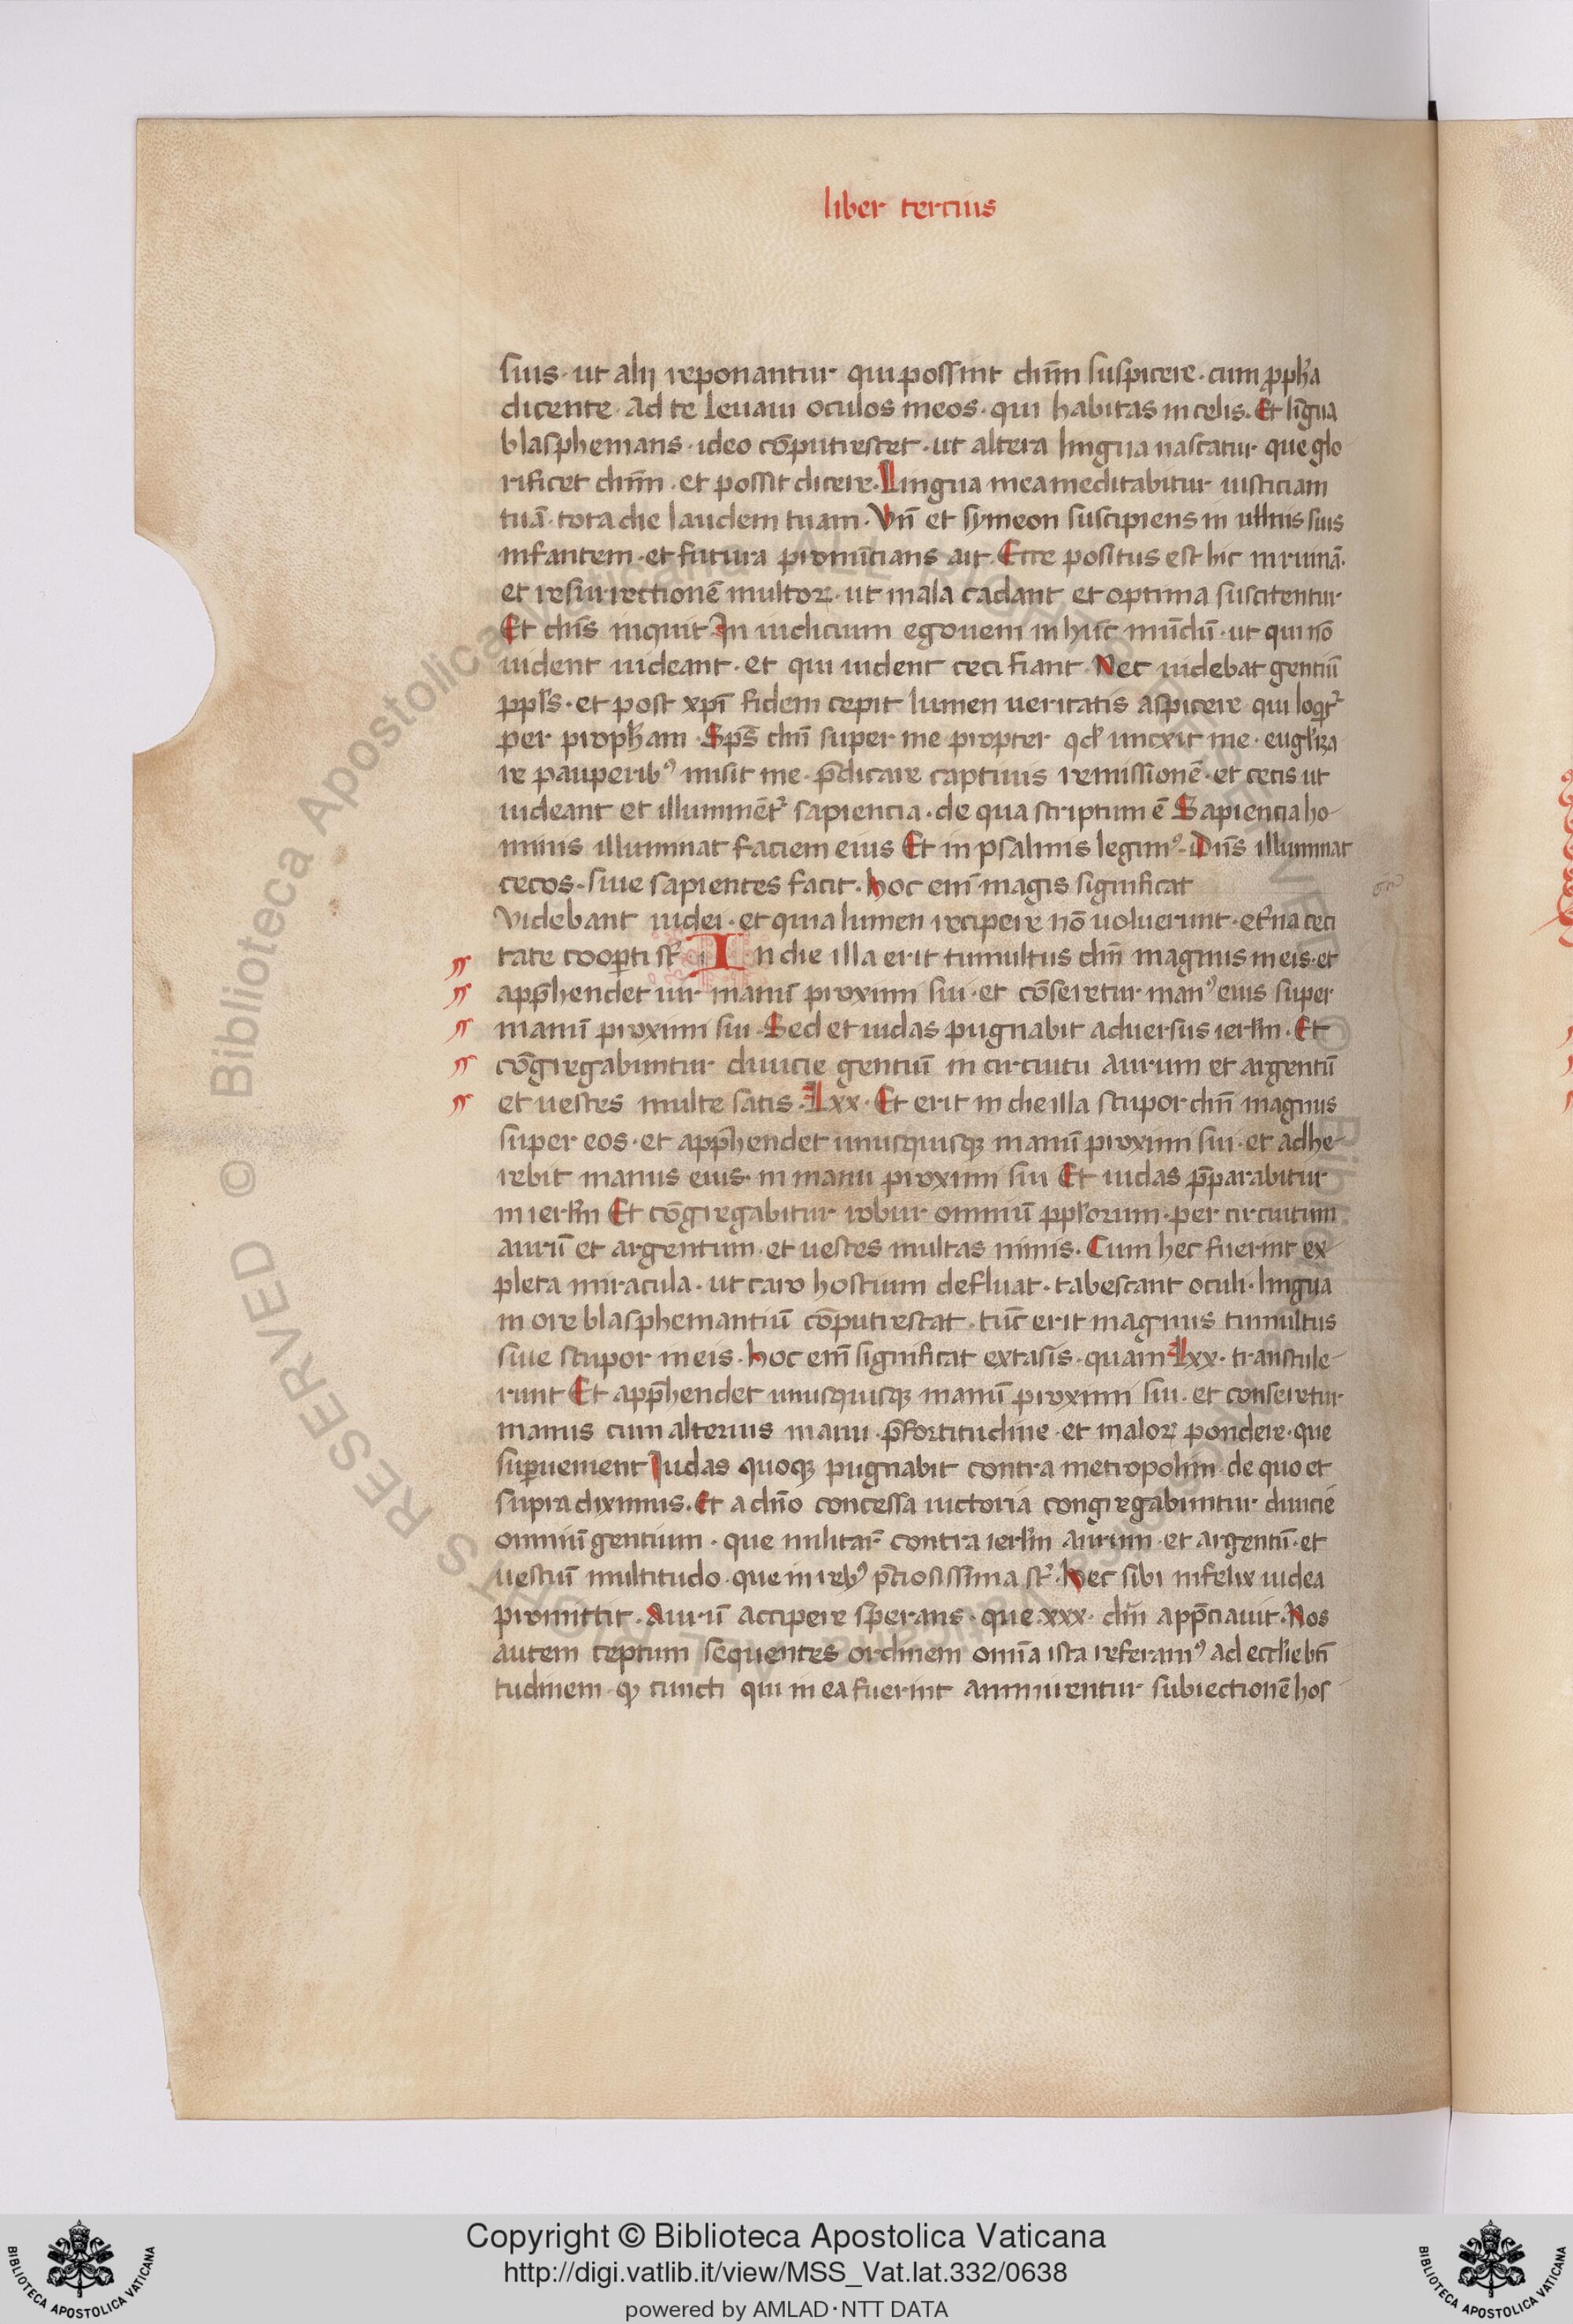 liber tercius
suis · ut alij reponantur qui possint dñm suspicere · cum ꝓpha
dicente · Ad te leuaui oculos meos · qui habitas in celis. Et lĩgua
blasphemans · ideo cõputrescet · ut altera lingua nascatur que glo
rificet dñm · et possit dicere · Lingua mea meditabitur iusticiam
tuã · tota die laudem tuam · Vñ et symeon suscipiens in ullnis suis
infantem · et futura pronũcians ait · Ecce positus est hic in ruinã ·
et resurrectionẽ multoꝝ · ut mala cadant et optima suscitentur
Et dñs inquit In iudicium ego ueni in hũc mũdũ · ut qui nõ
uident uideant · et qui uident ceci fiant · Nec uidebat gentiũ
ppĺs · et post xpĩ fidem cepit lumen ueritatis aspicere qui loqtͬ
per propham · Sps̃ dñi super me propter qd̛ uncxit me · eugĺiza
re pauperibꝰ misit me · p̃dicare captiuis remissionẽ · et cecis ut
uideant et illuminẽtͬ sapiencia · de qua scriptum ẽ Sapiencia ho
minis illuminat faciem eius Et in psalmis legimꝰ · Dñs illuminat
cecos · siue sapientes facit · hoc em̃ magis significat
Videbant iudei · et quia lumen recipere nõ uoluerunt · et̛na ceci
tate coop̱ti st̃ · In die illa erit tumultus dñi magnus in eis · et
app̃hendet uir manũ proximi sui · et cõseretur manꝰ eius super
manũ proximi sui · Sed et iudas pugnabit aduersus ierĺm · Et
cõgregabuntur diuicie gentiũ in circuitu aurum et argentũ
et uestes multe satis · Lxx · Et erit in die illa stupor dñi magnus
super eos · et app̃hendet unusquisqꝫ manũ proximi sui · et adhe
rebit manus eius · in manu proximi sui Et iudas p̃parabitur
in ierĺm Et cõgregabitur robur omniũ ppĺorum · per circuitum
aurũ et argentum · et uestes multas nimis · Cum hec fuerint ex
pleta miracula · ut caro hostium defluat · tabescant oculi · lingua
in ore blasphemantiũ cõputrescat · tũc erit magnus tumultus
siue stupor in eis · hoc em̃ significat extasis · quam Lxx · transtule
runt Et app̃hendet unusquisqꝫ manũ proximi sui · et conseretur
manus cum alterius manu · p̃ fortitudine · et maloꝝ pondere · que
sup̱uenient Iudas quoqꝫ pugnabit contra metropolim · de quo et
supra diximus. Et a dño concessa uictoria congregabuntur diuicie
omniũ gentium · que militar̃ contra ierĺm aurum · et argentũ · et
uestiũ multitudo · que in rebꝰ p̃ciosissima st̃ · hec sibi infelix iudea
promittit · Aurũ accipere sperans · que · xxx · dñi app̃ciauit · Nos
autem ceptum sequentes ordinem omĩa ista referamꝰ ad eccĺie bt̃i
tudinem · qꝫ cuncti qui in ea fuerint annuentur subiectionẽ hos
Copyright © Biblioteca Apostolica Vaticana
http://digi.vatlib.it/view/MSS_Vat.lat.332/0638
powered by AMLAD·NTT DATA